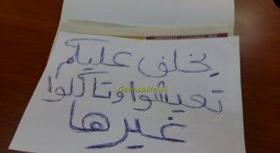 يخلف عليكم
تعيشوا وتاكلوا
غيرها